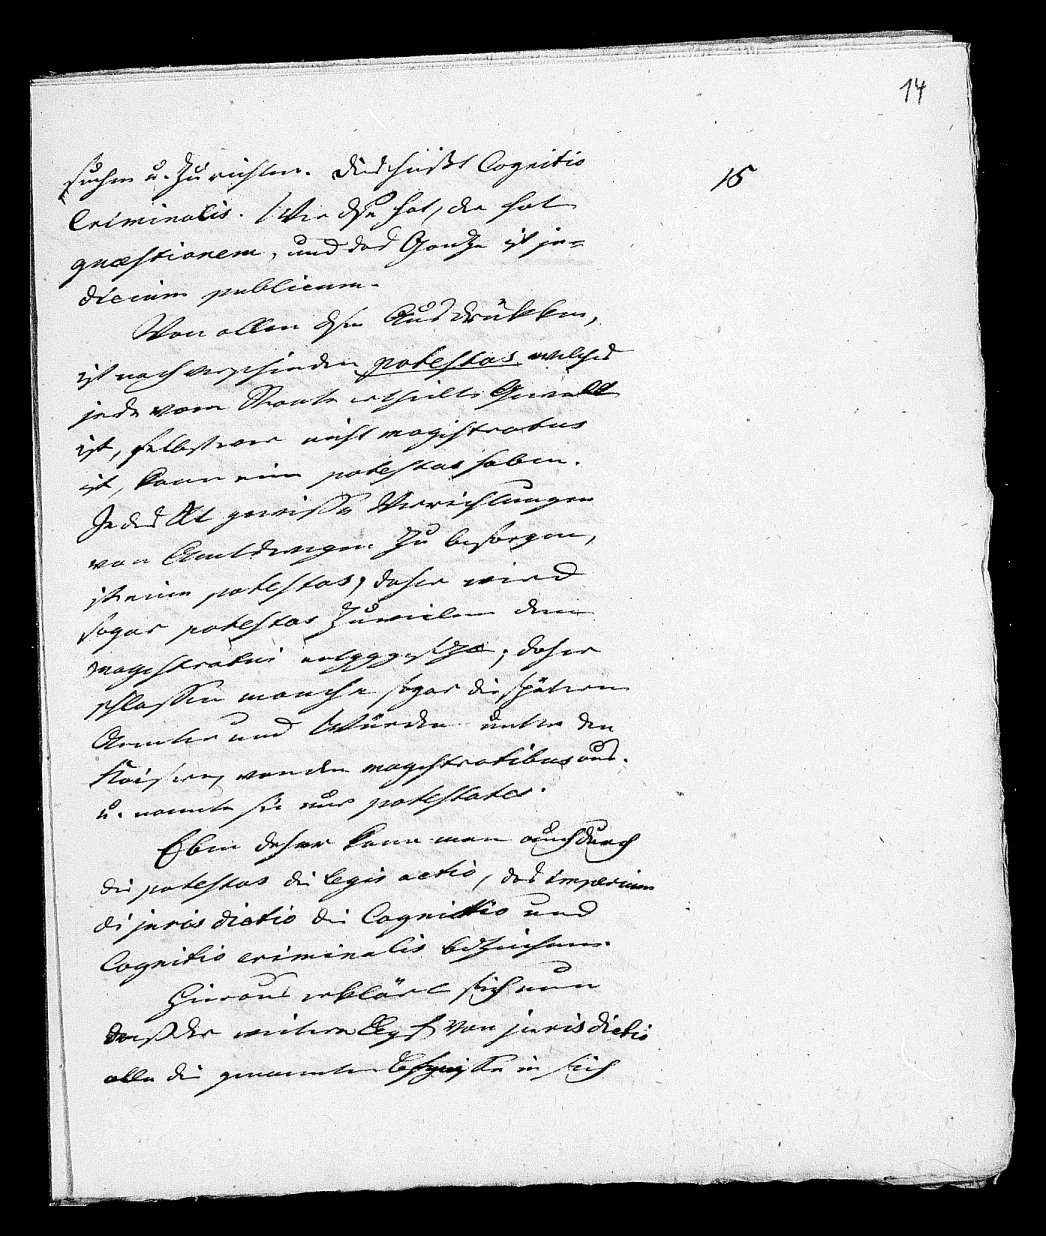 14
15
suchen u. zu richten. Dies heißt Cognitio
Criminalis. Wer dse hat, der hat
quæstionem, und das Ganze ist ju=
dicium publicum.
Von allen dsen Ausdrükken,
ist noch verschieden potestas, welches
jede vom Staate ertheilte Gewalt
ist, selbst wer nicht magistratus
ist, kann eine potestas haben.
Jedes Recht gewisse Verrichtungen
von Amtswegen zu besorgen,
ist eine potestas, daher wird
sogar potestas zuweilen dem
magistratui entgggesetzt; daher
schlossen manche sogar die spätern
Aemter und Würden unter den
Kaisern von den magistratibus aus.
u. nannte sie nur potestates.
Eben daher kann man auch durch
die potestas die legis actio, das imperium
die juris dictio die Cognitio und
Cognitio criminalis bezeichnen.
Hieraus erklärt sich nun
daß der weitere Begf von juris dictio
alle die genannten Befugnisse in sich